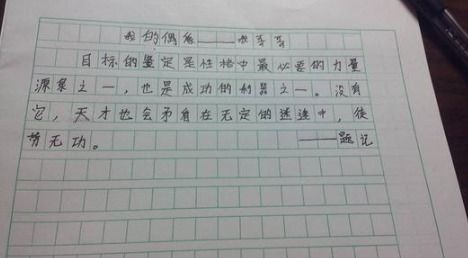 我的偶像——李苓苓
目标的坚定是性格中最必要的力量
源泉之一,也是成功的利器之一。没有
它,天才也会矛盾在无定的迷途中,徒
劳无功。
——题记